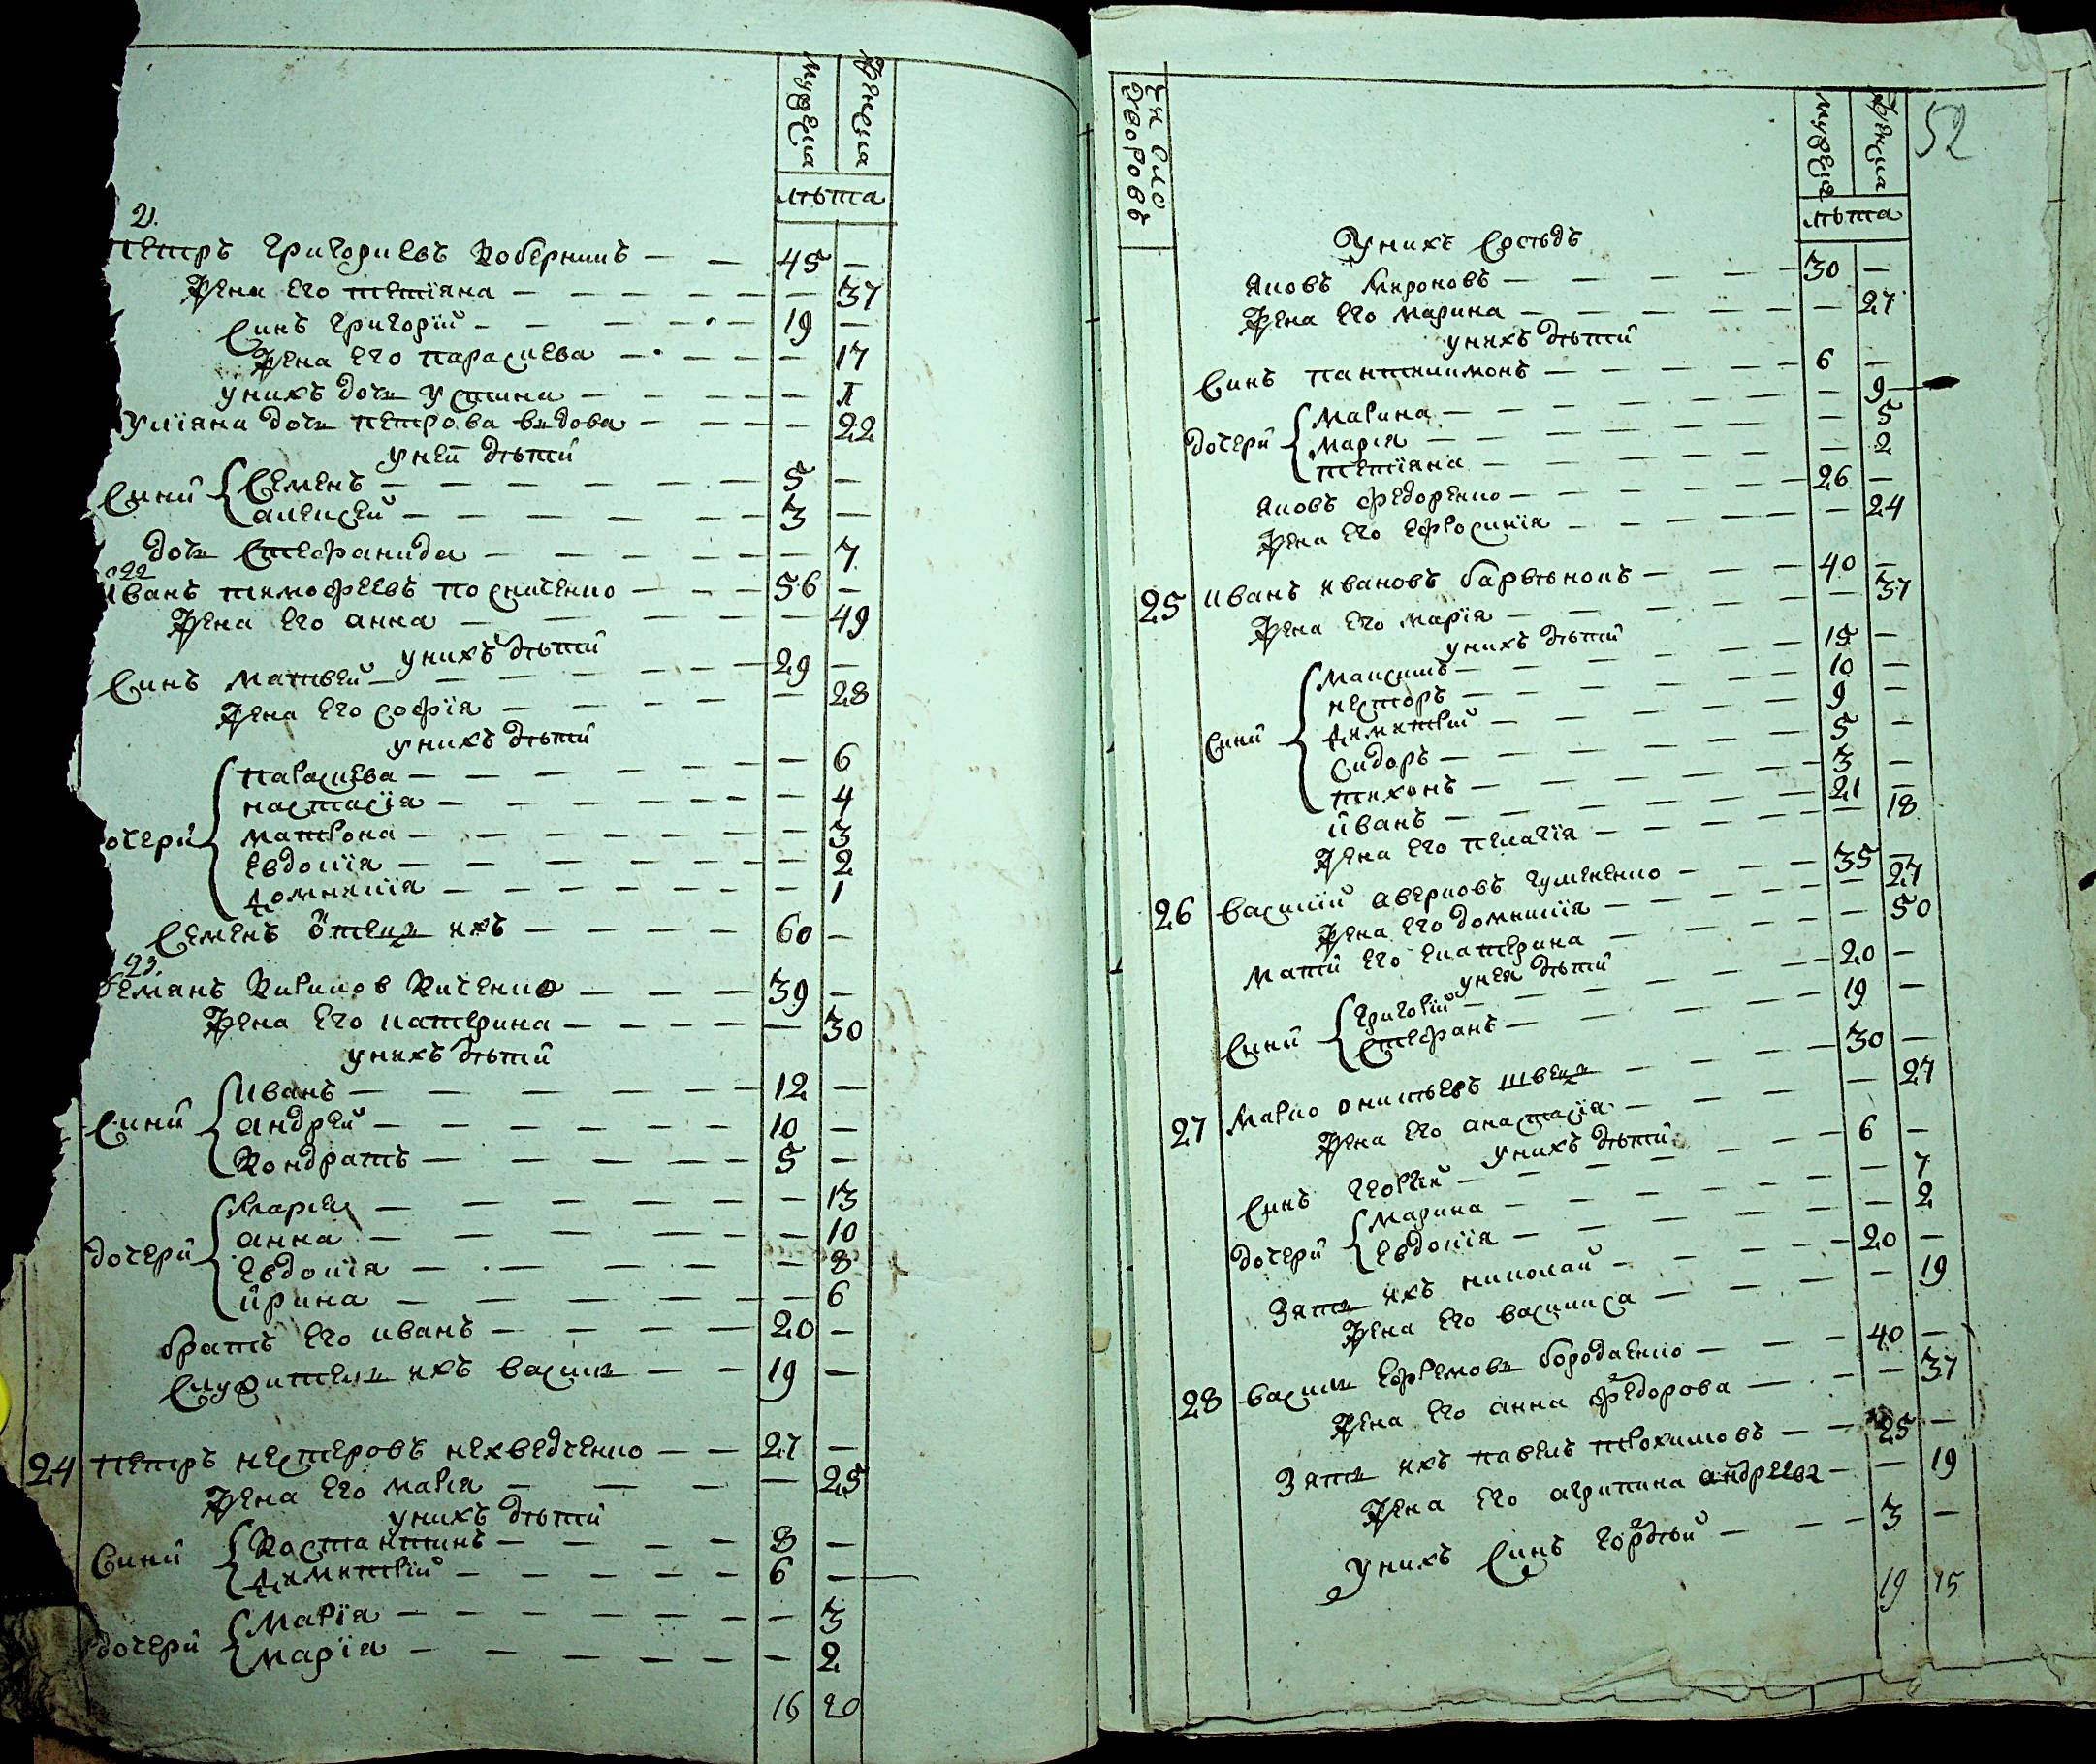 мужеска
женска
лѣта
21.
Петръ Григориевъ Коберникъ — — 45 —
Жена его Тетïяна — — 37
Синъ Григорïй — 19 —
Жена его Параскева — — 17
У нихъ дочь Устина — — 1
Улïяна дочь Петрова вдова — — 22
у ней дѣти
Сини Семенъ — 5 —
алексей — 3 —
дочь Стефанида — — 7
22
Иванъ тимофеевъ Посниченко — 56 —
Жена его анна — — 49
у нихъ дѣти
Синъ Матвей — 29 —
Жена его софïя — — 28
у нихъ дѣти
дочери Параскева — — 6
настасïя — — 4
матрона — — 3
Евдокïя — — 2
Домникïя — — 1
Семенъ отецъ ихъ — 60 —
23.
Демянъ Кирилов Киченко — 39 —
Жена его катерина — — 30
у нихъ дѣти
Сини Иванъ — 12 —
андрей — 10 —
Кондратъ — 5 —
дочери Мария — — 13
анна — — 10
Евдокïя — — 8
ирина — — 6
братъ его иванъ — 20 —
Служитель ихъ василь — 19 —
24 Петръ нестеровъ нехведченко — 27 —
Жена его мария — — 25
у нихъ дѣти
Сини Костантинъ — 8 —
Димитрïй — 6 —
дочери Марïя — — 3
Марïя — — 2
16 20
Число дворовъ
мужеска
женска
52
лѣта
У нихъ сосѣдъ
Яковъ Мироновъ — 30 —
Жена его марина — — 27
у нихъ дѣти
Синъ пантелимонъ — 6 —
дочери Марина — — 9
Мария — — 5
тетïяна — — 2
Яковъ федоренко — 26 —
Жена его ефросинïя — — 24
25 Иванъ ивановъ барвѣнокъ — 40 —
Жена его марïя — — 37
у нихъ дѣти
Сини Максимъ — 15 —
несторъ — 10 —
Димитрий — 9 —
Сидоръ — 5 —
тихонъ — 3 —
иванъ — 21 —
Жена его пелагïя — — 18
26 Василïй аверковъ гумененко — 35 —
Жена его домникïя — — 27
Мати его екатерина — — 50
у нея дѣти
Сини Григорïй — 20 —
Стефанъ — 19 —
27 Марко онитьевъ швецъ — 30 —
Жена его анастасïя — — 27
у нихъ дѣти
Синъ георгий — 6 —
дочери Марина — — 7
Евдокïя — — 2
Зять ихъ николай — 20 —
Жена его василиса — — 19
28 Василь Ефремовъ бородаенко — 40 —
Жена его анна федорова — — 37
Зять ихъ павелъ трохимовъ — 25 —
Жена его агрипина андреева — — 19
У нихъ синъ гордѣй — 3 —
19 15